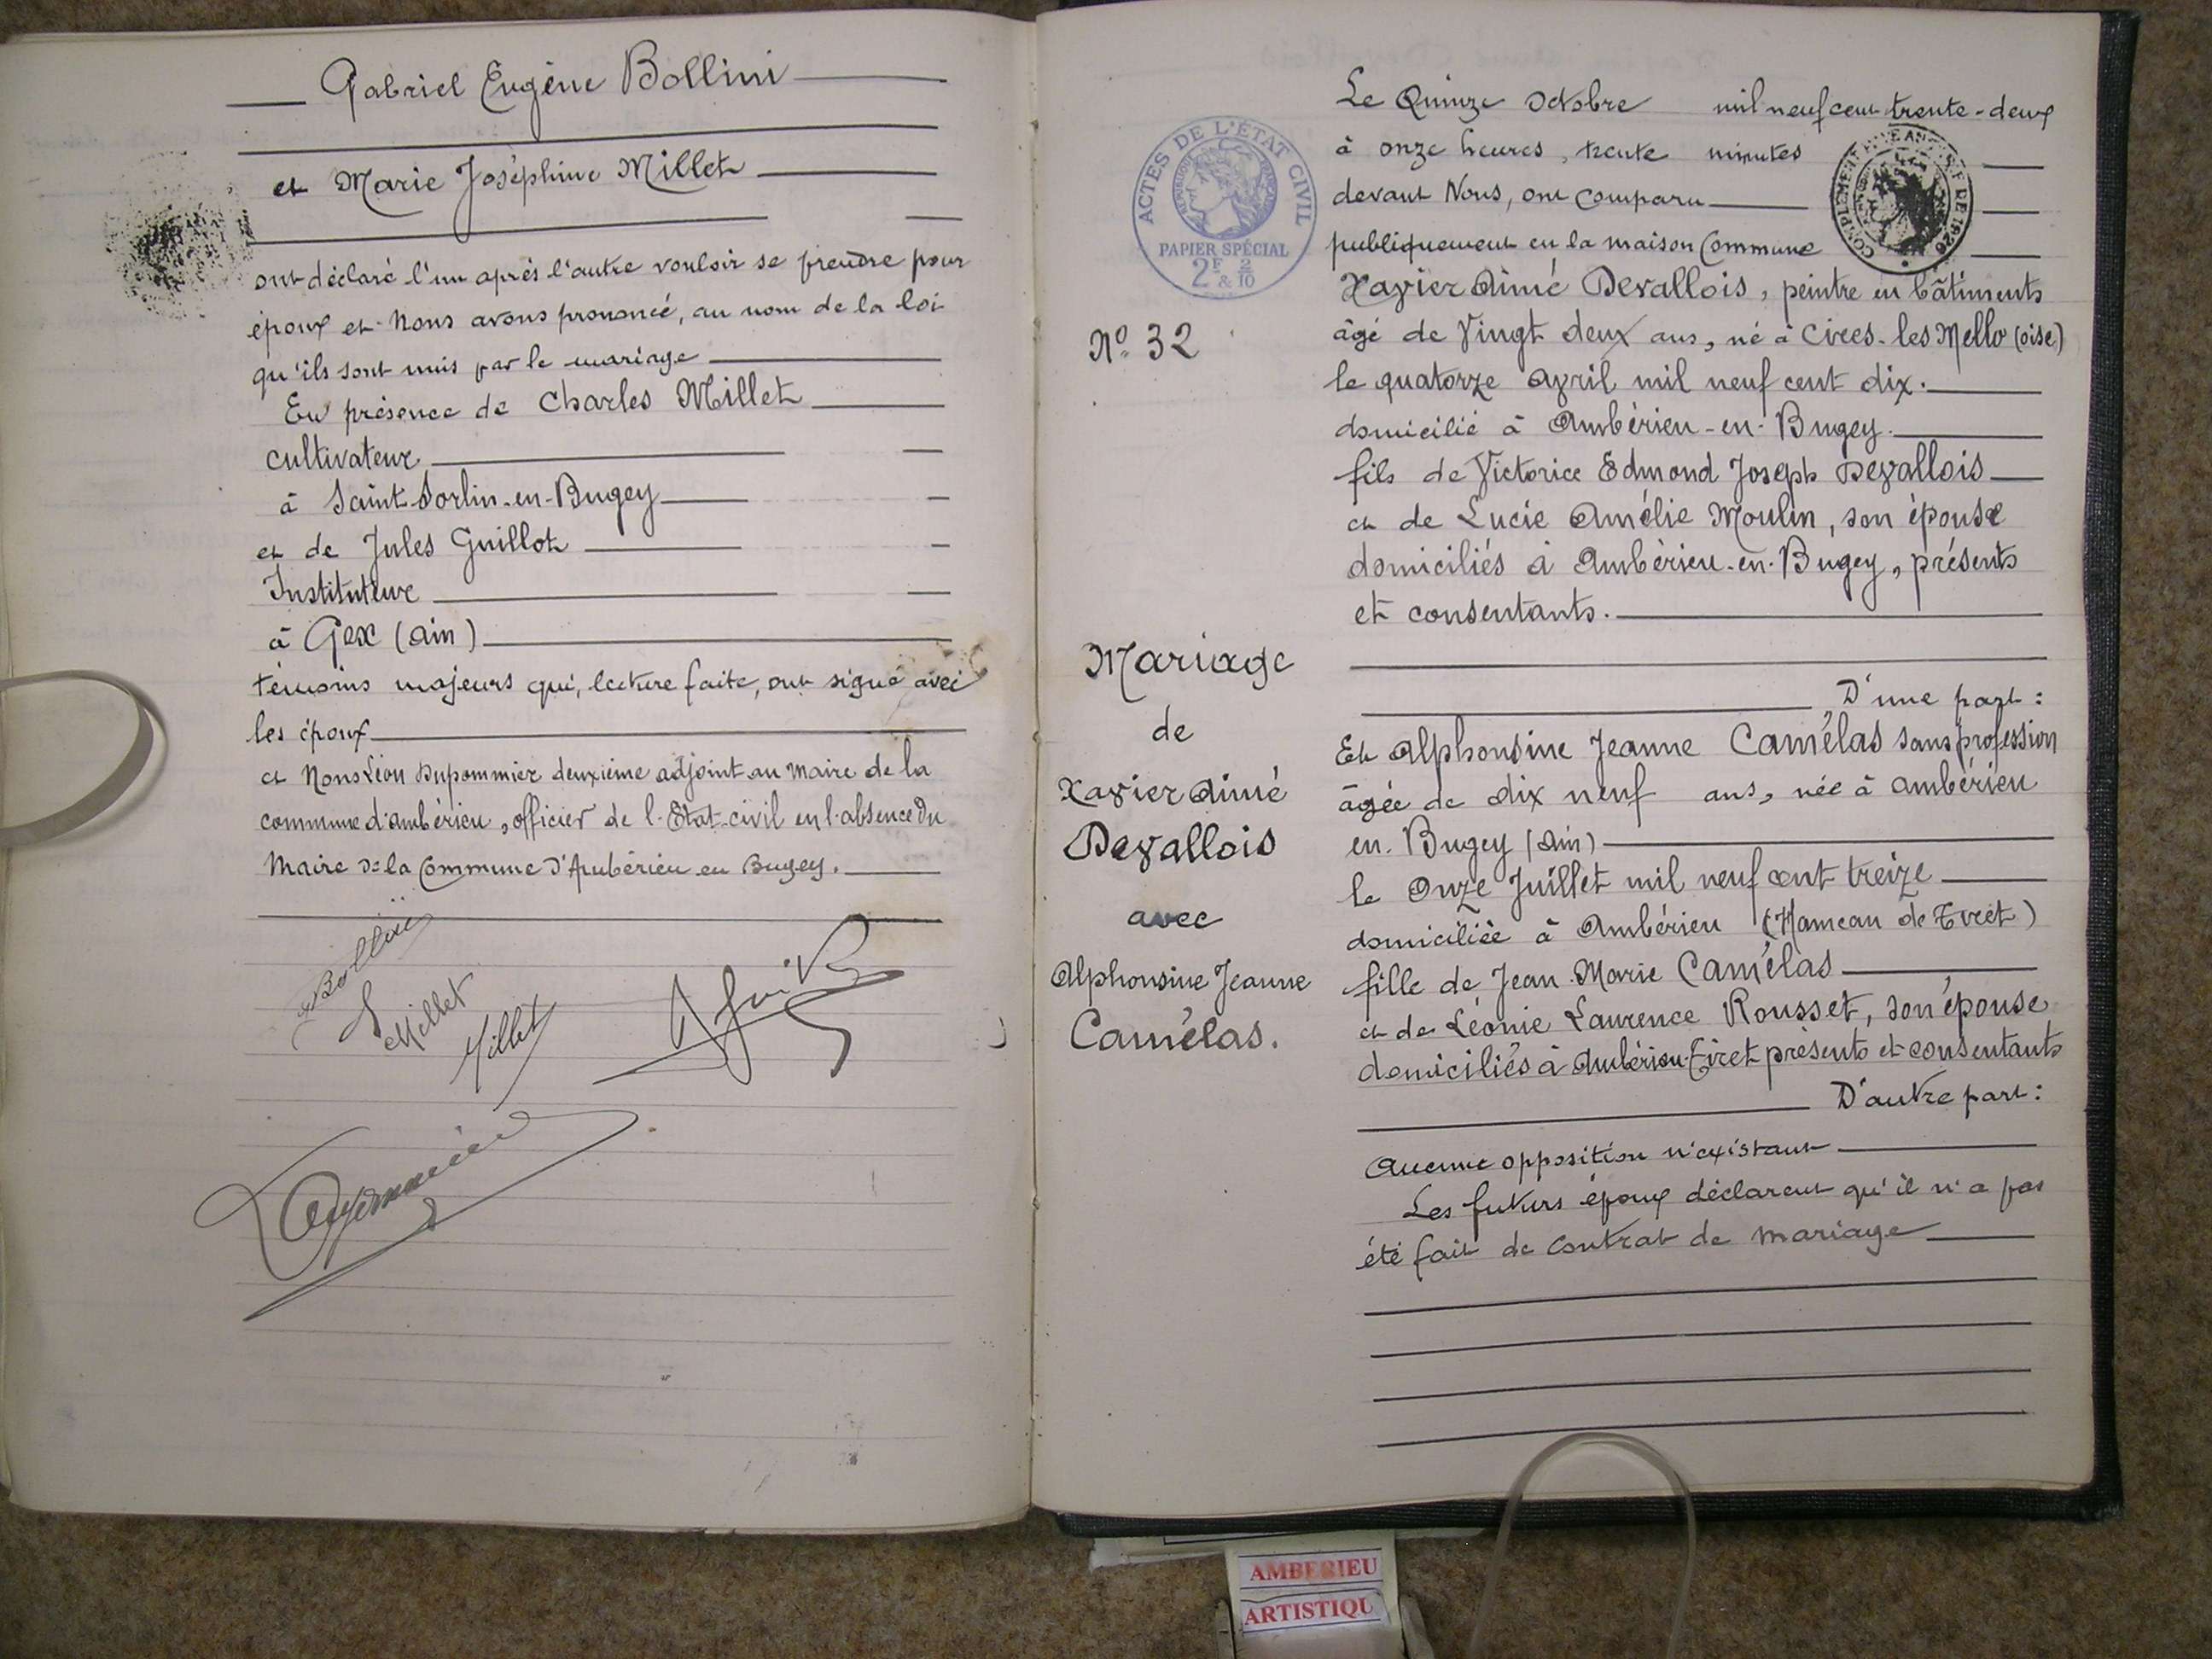 Gabriel Eugène Bollini
et Marie Joséphine Millet
ont déclaré l'un après l'autre vouloir se prendre pour
époux et Nous avons prononcé, au nom de la loi
qu'ils sont unis par le mariage
En présence de Charles Millet
cultivateur
à Saint-Sorlin-en-Bugey
et de Jules Guillot
Instituteur
à Gex (Ain)
témoins majeurs qui, lecture faite, ont signé avec
les époux
et Nous Léon Dupommier deuxième adjoint au Maire de la
commune d'Ambérieu, officier de l'Etat-civil en l'absence du
Maire de la Commune d'Ambérieu en Bugey.
Bollini
Millet
Millet
ACTES DE L'ÉTAT CIVIL
RÉPUBLIQUE FRANÇAISE
PAPIER SPÉCIAL
2F & 2/10
N° 32
Mariage
de
Xavier Aimé
Devallois
avec
Alphonsine Jeanne
Camélas.
Le Quinze Octobre mil neuf cent trente-deux
à onze heures, trente minutes
devant Nous, ont comparu
publiquement en la maison Commune
COMPLÉMENT DE 1926
Xavier Aimé Devallois, peintre en bâtiments
âgé de Vingt deux ans, né à Cires-les Mello (oise)
le quatorze Avril mil neuf cent dix.
domicilié à Ambérieu-en-Bugey.
fils de Victorice Edmond Joseph Devallois
et de Lucie Amélie Moulin, son épouse
domiciliés à Ambérieu-en-Bugey, présents
et consentants.
D'une part :
Et Alphonsine Jeanne Camélas sans profession
âgée de dix neuf ans, née à Ambérieu
en-Bugey (Ain)
le Onze Juillet mil neuf cent treize
domiciliée à Ambérieu (Hameau de Tiret)
fille de Jean Marie Camélas
et de Léonie Laurence Rousset, son épouse
domiciliés à Ambérieu-Tiret présents et consentants
D'autre part :
Aucune opposition n'existant
Les futurs époux déclarent qu'il n'a pas
été fait de Contrat de mariage
AMBERIEU
ARTISTIQU